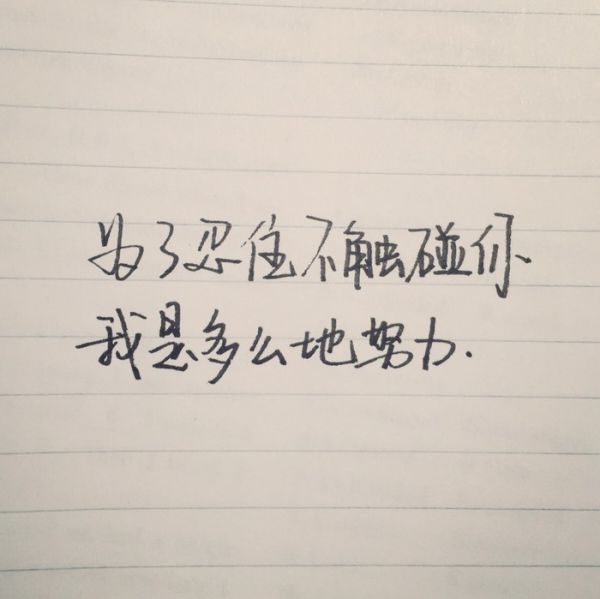 为了忍住不触碰你、
我是多么地努力.